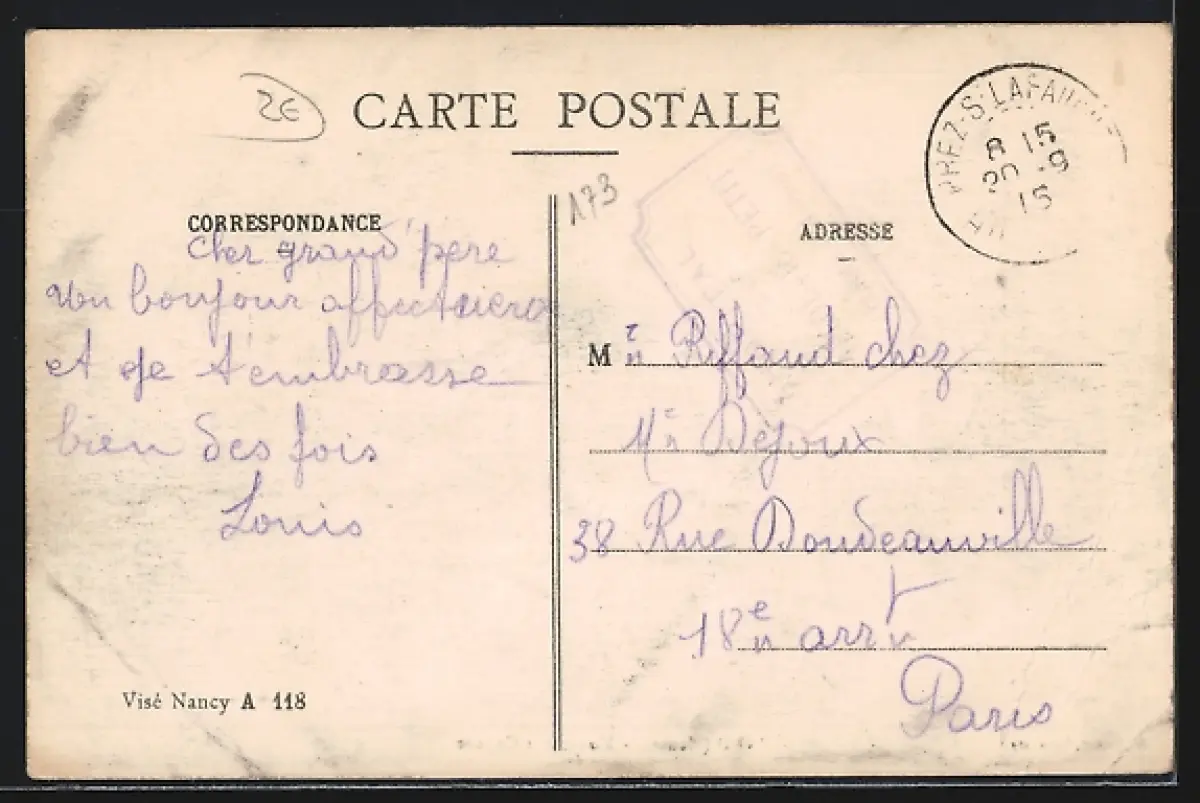 2€
CARTE POSTALE
PREZ-S/LAFAUCHE
8 15
20 -9
15
173
CORRESPONDANCE
ADRESSE
Cher grand père
Un bonjour affectueux
et je t'embrasse
bien des fois
Louis
Mr Riffaud chez
Mr Dejoux
38 Rue Doudeauville
18e arrt
Paris
Visé Nancy A 118